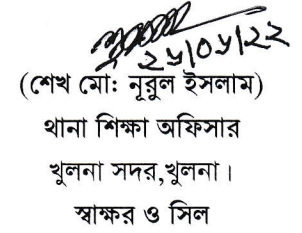 ২৮/০৮/২২
(শেখ মো: নূরুল ইসলাম)
থানা শিক্ষা অফিসার
খুলনা সদর,খুলনা।
স্বাক্ষর ও সিল